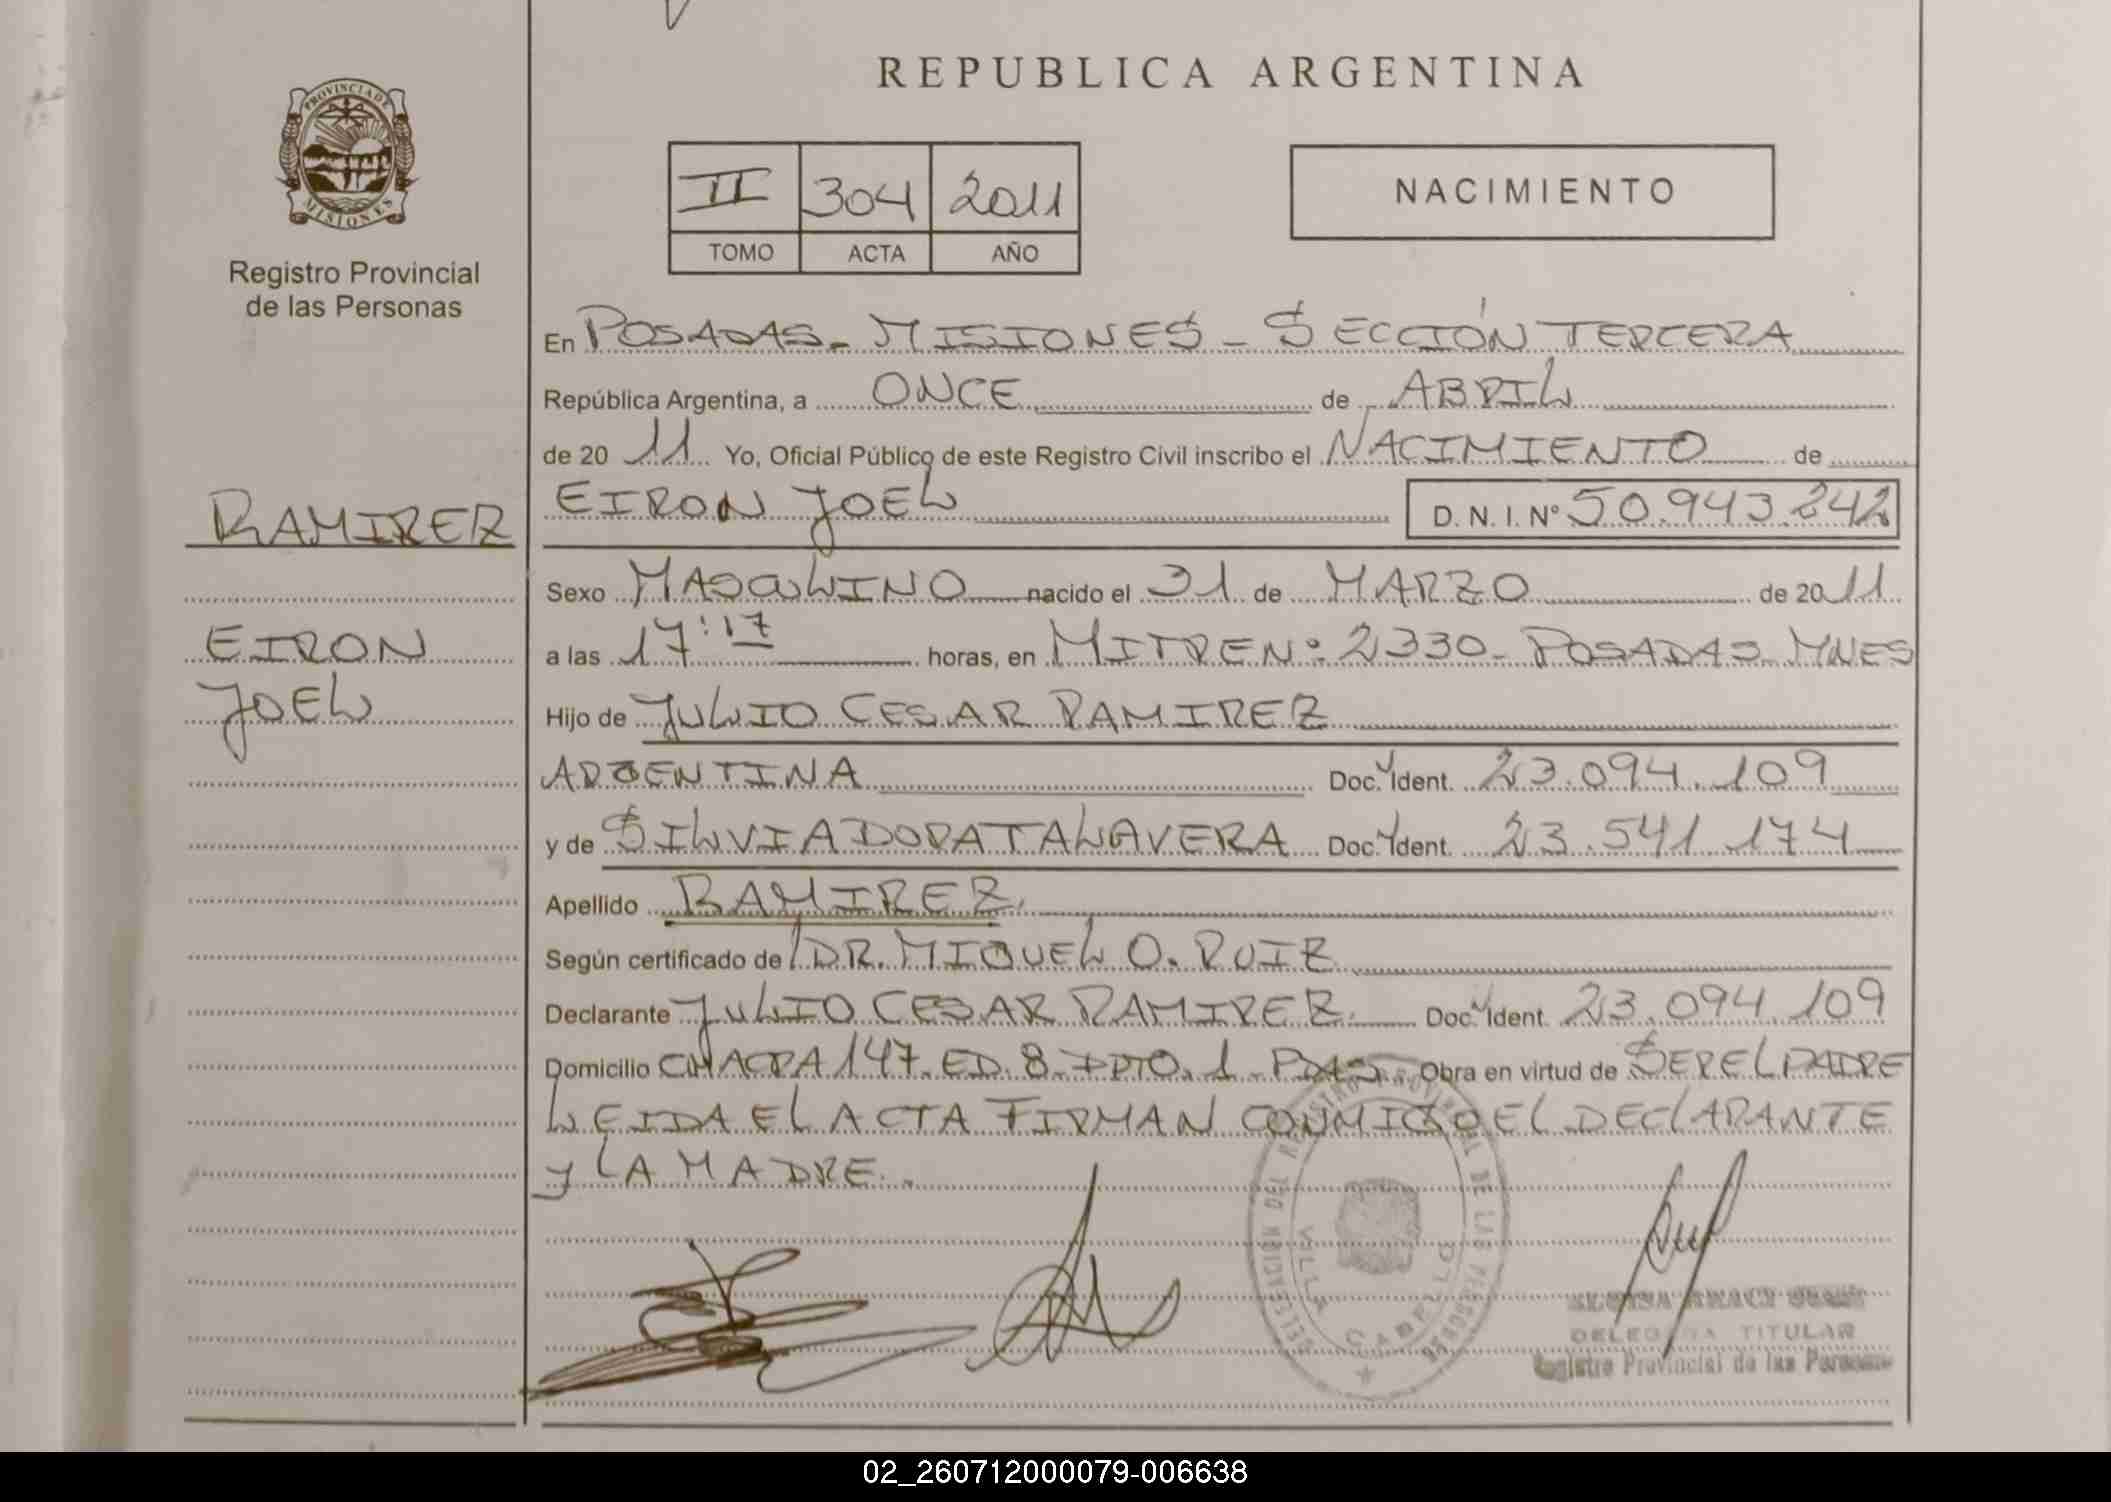 REPUBLICA ARGENTINA
PROVINCIA DE
MISIONES
Registro Provincial
de las Personas
II 304 2011
TOMO ACTA AÑO
NACIMIENTO
En POSADAS - MISIONES - SECCIÓN TERCERA
República Argentina, a ONCE de ABRIL
de 20 11 Yo, Oficial Público de este Registro Civil inscribo el NACIMIENTO de
RAMIREZ
EIRON JOEL D. N. I. N° 50.943.242
Sexo MASCULINO nacido el 31 de MARZO de 20 11
EIRON
JOEL
a las 17:17 horas, en MITRE N° 2330 - POSADAS - MNES
Hijo de JULIO CESAR RAMIREZ
ARGENTINA Doc. Ident. 23.094.109
y de SILVIA DORA TALAVERA Doc. Ident. 23.541.174
Apellido RAMIREZ.
Según certificado de DR. MIGUEL O. RUIZ
Declarante JULIO CESAR RAMIREZ. Doc. Ident. 23.094.109
Domicilio CHACRA 147. ED. 8 - DPTO. 1 - PDAS Obra en virtud de SER EL PADRE
LEIDA EL ACTA FIRMAN CONMIGO EL DECLARANTE
Y LA MADRE..
DELEGACION DEL REGISTRO PROVINCIAL DE LAS PERSONAS
VILLA CABELLO
DELEGADA TITULAR
Registro Provincial de las Personas
02_260712000079-006638